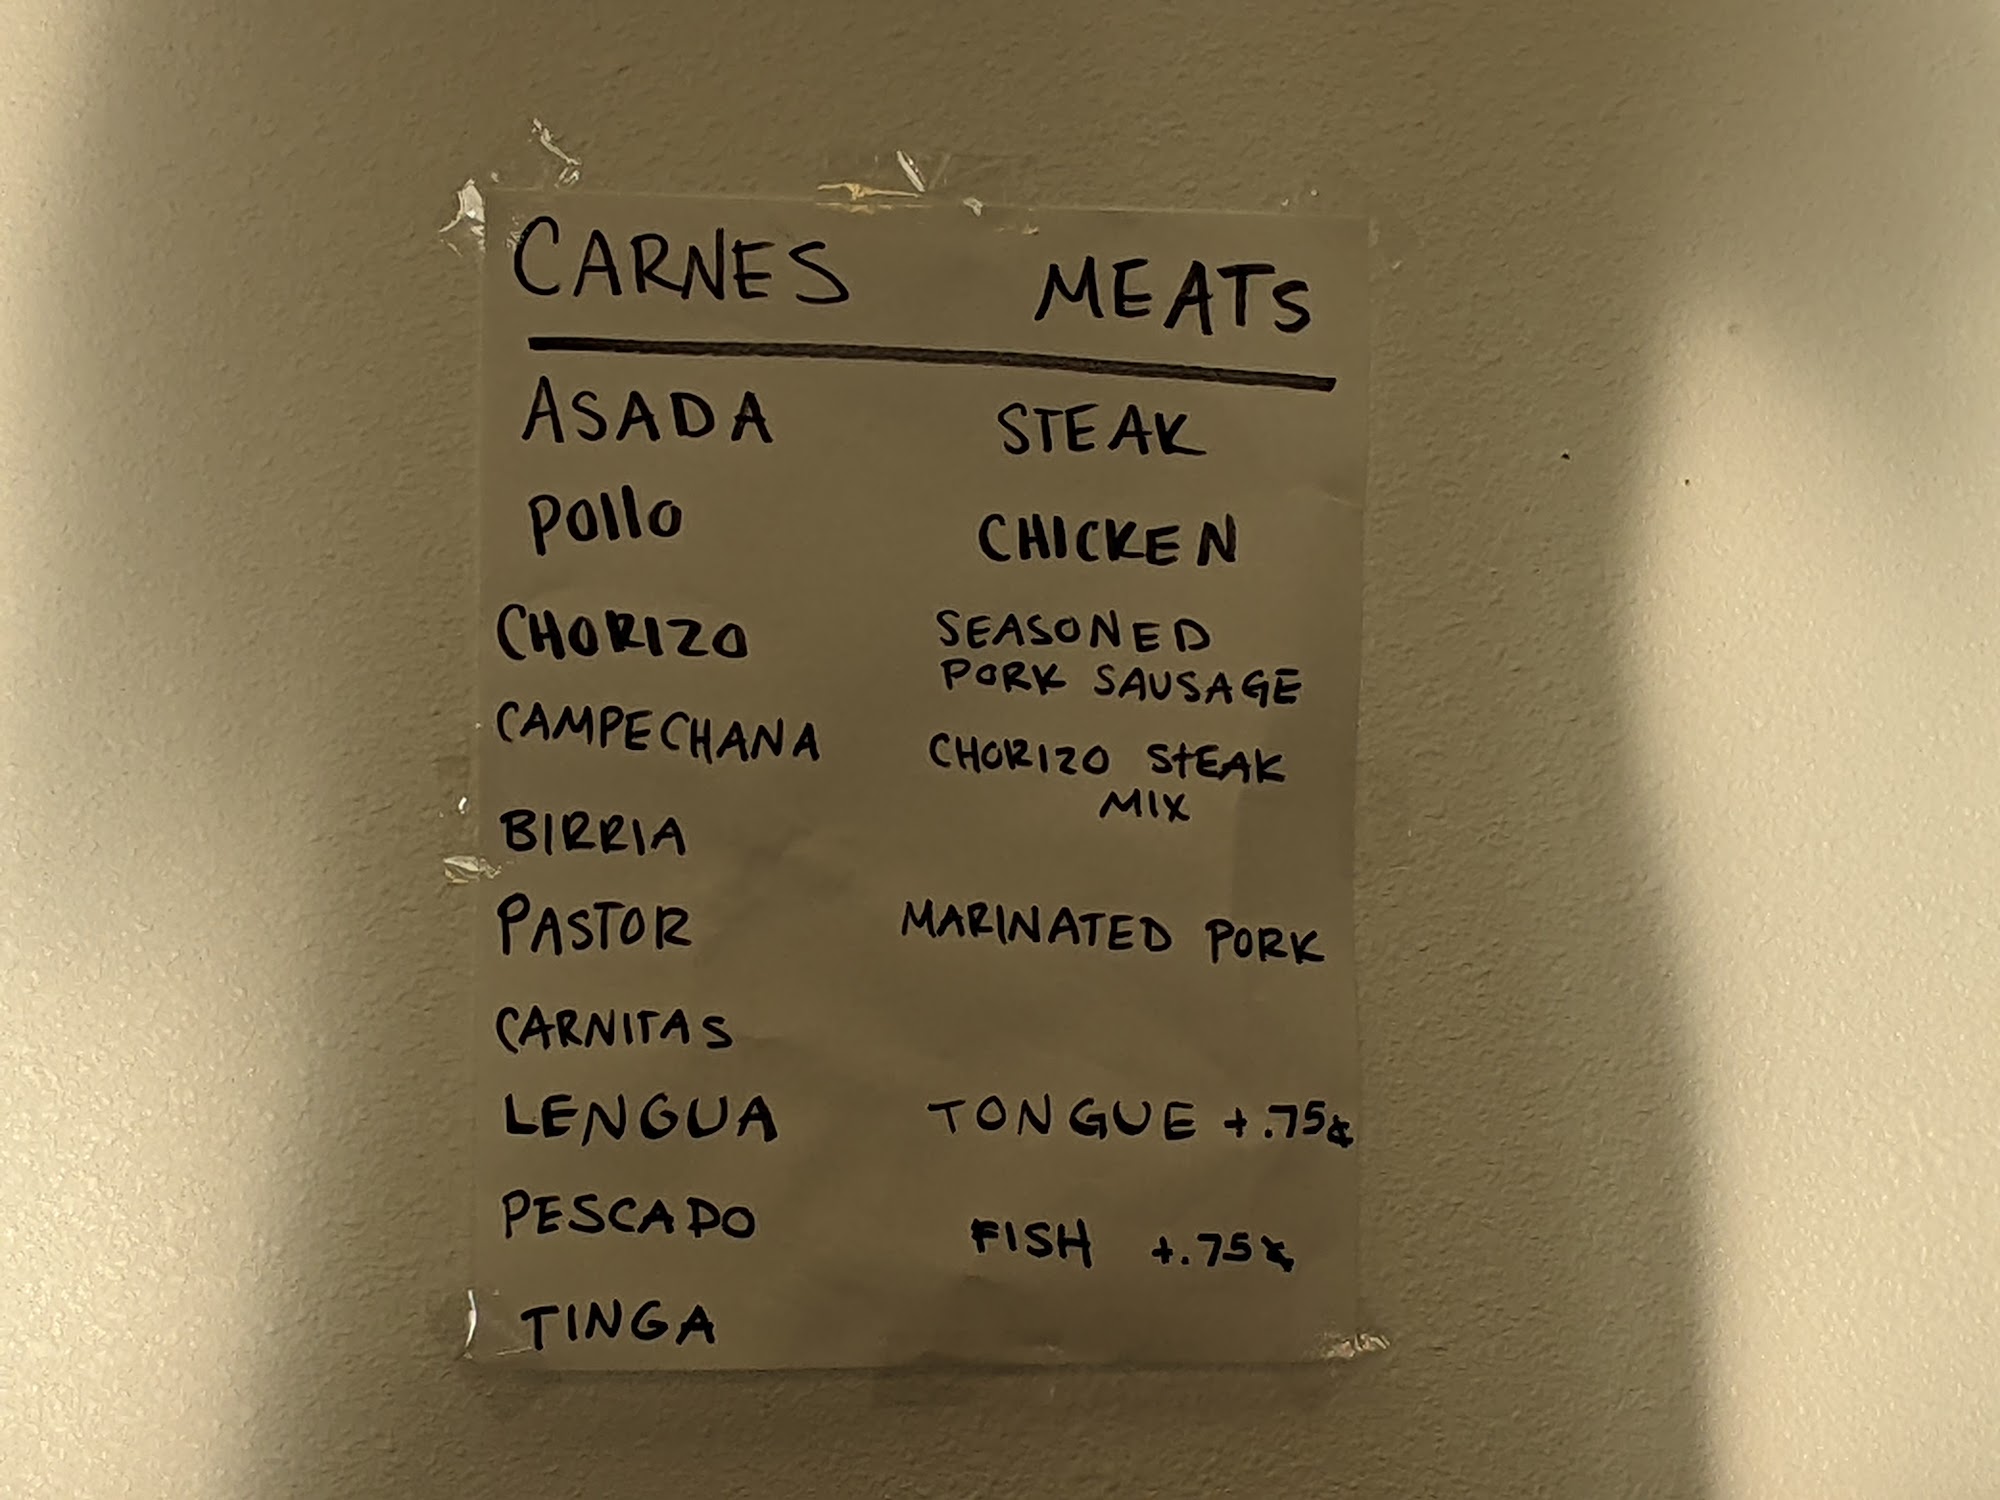 CARNES MEATS
ASADA STEAK
Pollo CHICKEN
CHORIZO SEASONED
PORK SAUSAGE
CAMPECHANA CHORIZO STEAK
MIX
BIRRIA
PASTOR MARINATED PORK
CARNITAS
LENGUA TONGUE +.75¢
PESCADO FISH +.75¢
TINGA